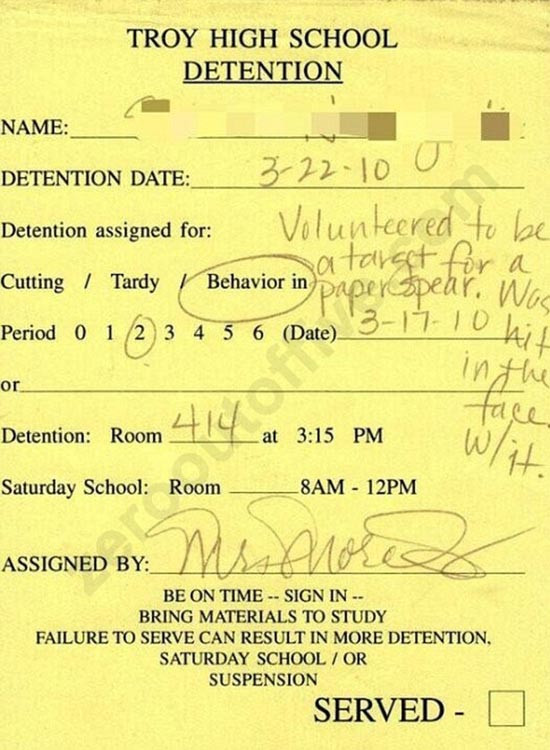 TROY HIGH SCHOOL
DETENTION
NAME:
DETENTION DATE: 3-22-10
Detention assigned for: Volunteered to be
a target for a
Cutting / Tardy / Behavior in paper spear. Was
Period 0 1 2 3 4 5 6 (Date) 3-17-10 hit
in the
or
face
Detention: Room 414 at 3:15 PM
w/it.
Saturday School: Room 8AM - 12PM
ASSIGNED BY: Mrs.
BE ON TIME -- SIGN IN --
BRING MATERIALS TO STUDY
FAILURE TO SERVE CAN RESULT IN MORE DETENTION,
SATURDAY SCHOOL / OR
SUSPENSION
SERVED -
zerooutoffive.com